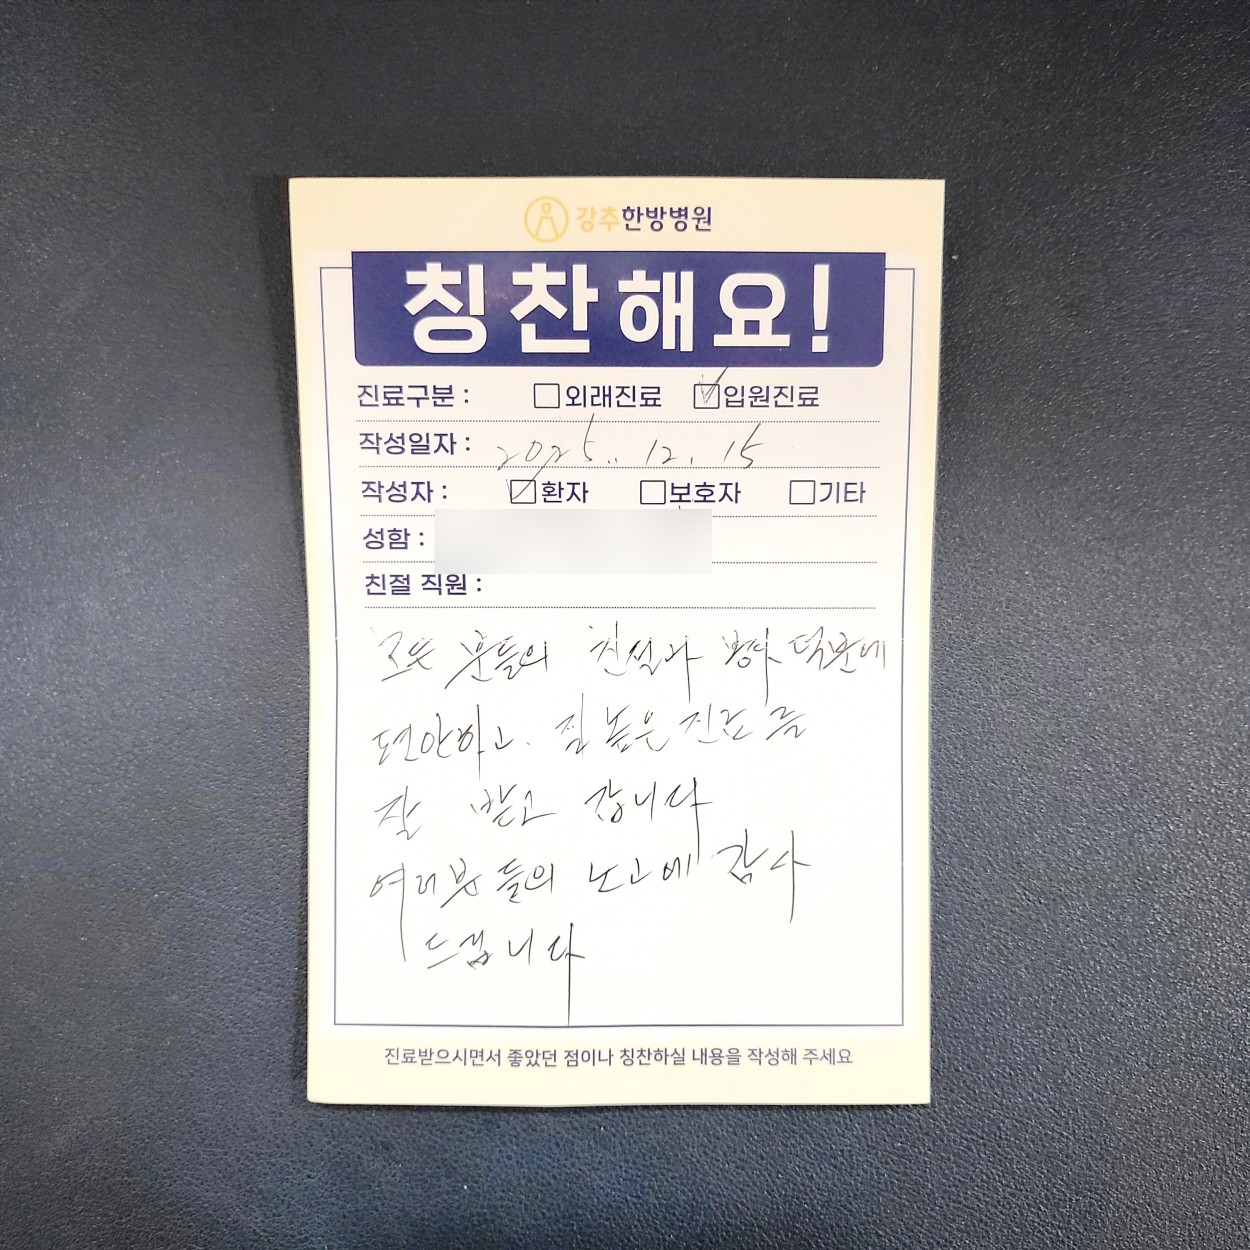 강추한방병원
칭찬해요!
진료구분 : 외래진료 입원진료
작성일자 : 2025. 12. 15
작성자 : 환자 보호자 기타
성함 :
친절 직원 :
모든 분들의 친절과 덕분에
편안하고. 질 높은 진료를
잘 받고 갑니다
여러분들의 노고에 감사
드립니다
진료받으시면서 좋았던 점이나 칭찬하실 내용을 작성해 주세요